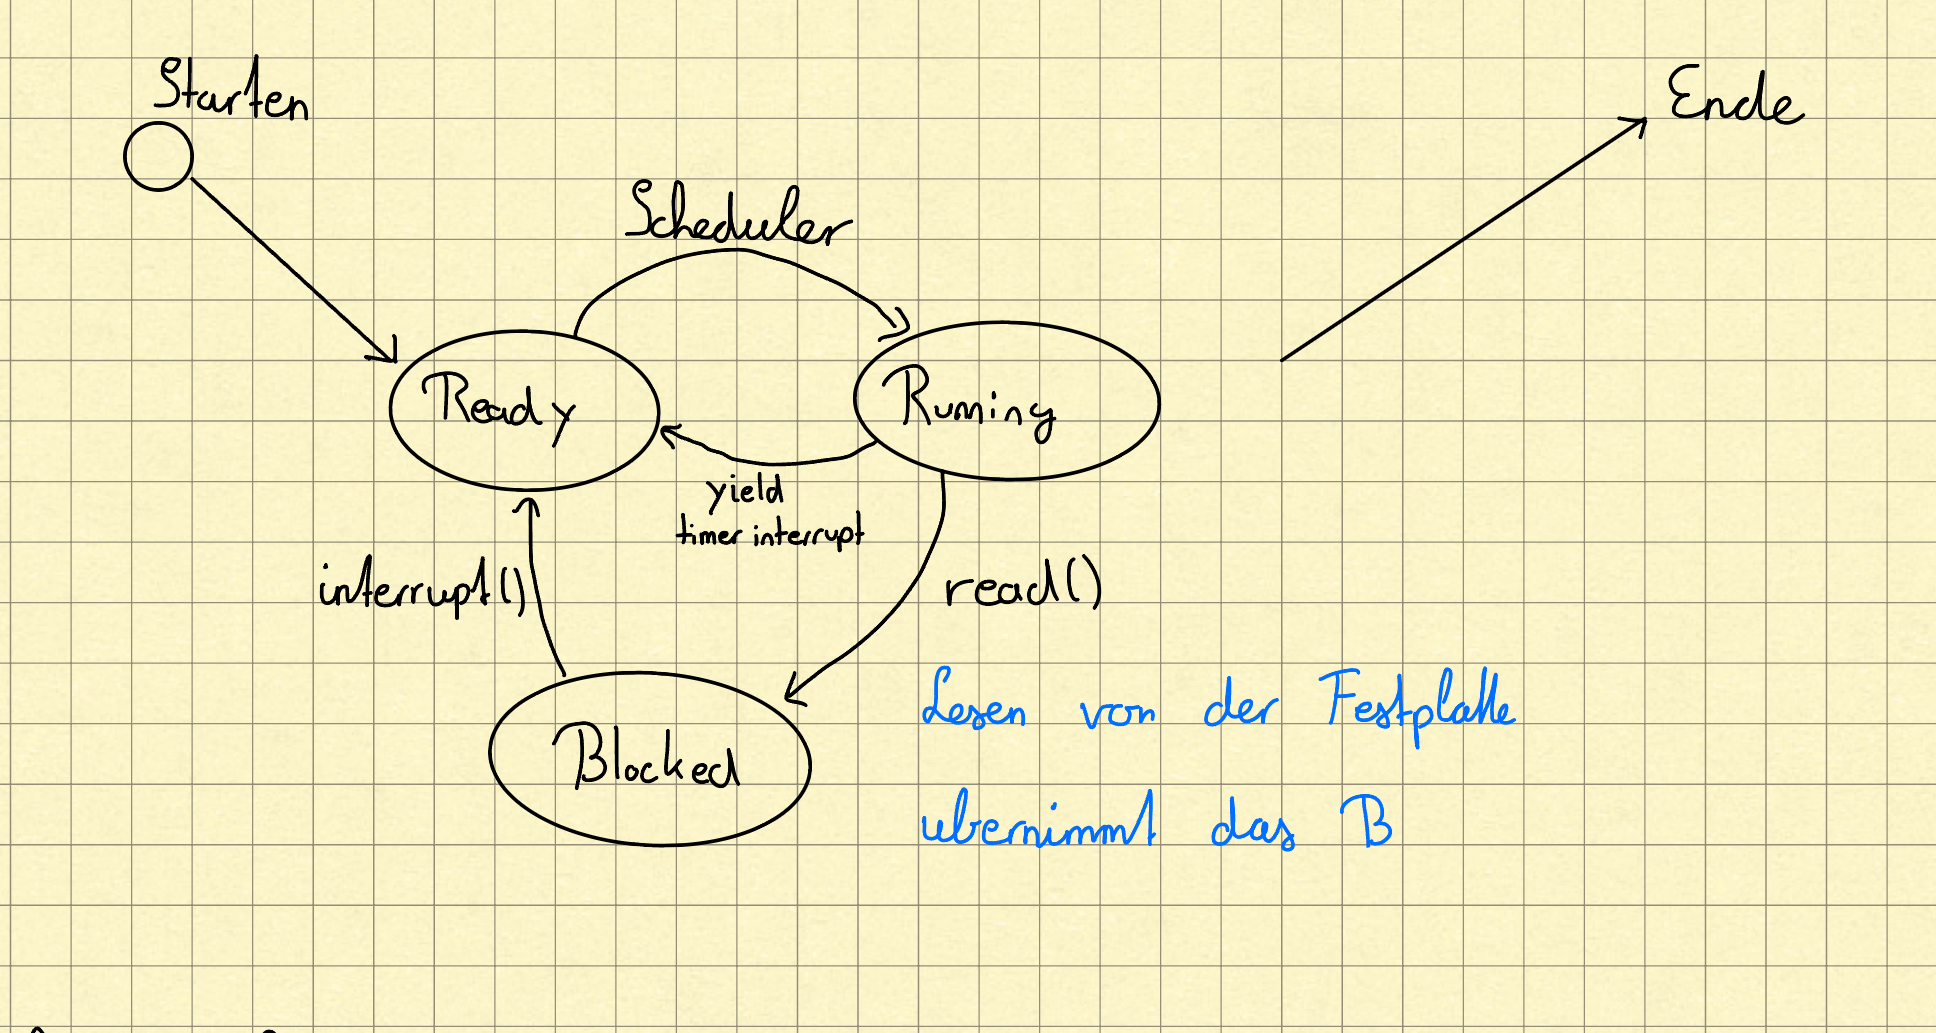 Starten
Ende
Scheduler
Ready
Runing
yield
timer interrupt
interrupt()
read()
Blocked
Lesen von der Festplatte
ubernimmt das B